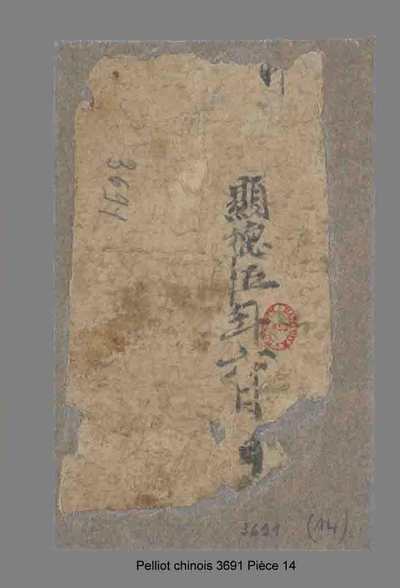 顯德伍年六月
3691
3691 (14)
Pelliot chinois 3691 Pièce 14